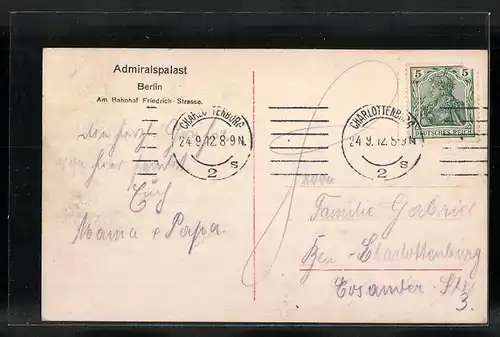 Admiralspalast
Berlin
Am Bahnhof Friedrich-Strasse.
CHARLOTTENBURG
24.9.12.8-9N.
2 s
CHARLOTTENBURG
24.9.12.8-9N.
2 s
5 5
DEUTSCHES REICH
Die herzl.
von hier sendet
Euch
Mama & Papa.
Familie Gabriel
Charlottenburg
Eosander Str.
3.